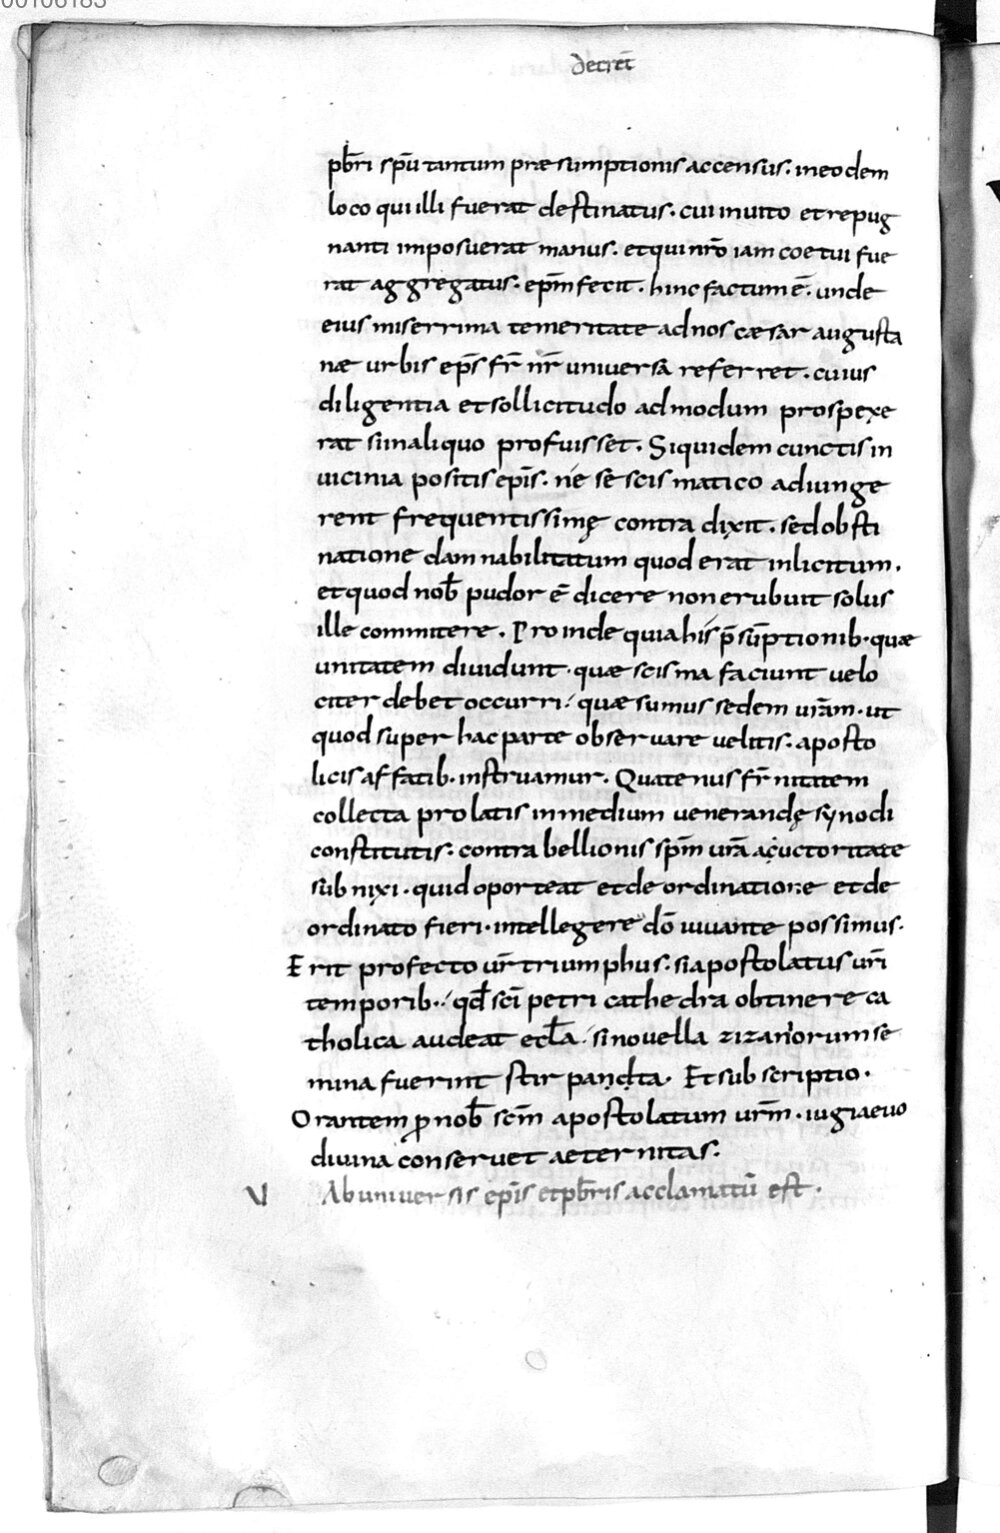 00106183
decret̄
pb̄ri sp̄u tantum præsumptionis accensus. in eodem
loco qui illi fuerat destinatus. cui inuito et repug
nanti imposuerat manus. et qui nr̄o iam coetui fue
rat aggregatus. ep̄m fecit. hinc factum ē. unde
eius miserrima temeritate ad nos cæsaraugusta
næ urbis ep̄s fr̄ nr̄ uniuersa referret. cuius
diligentia et sollicitudo admodum prospexe
rat si in aliquo profuisset. Siquidem cunctis in
uicinia positis ep̄is. ne se scismatico adiunge
rent frequentissimę contradixit. sed obsti
natione damnabili totum quod erat inlicitum.
et quod nob̄ pudor ē dicere non erubuit solus
ille committere. Proinde quia his p̄sūptionib. quæ
unitatem diuidunt. quæ scisma faciunt uelo
citer debet occurri. quæsumus sedem ur̄am. ut
quod super hac parte obseruare uelitis. aposto
licis affatib. instruamur. Quatenus fr̄nitatem
collecta prolatis in medium uenerandę synodi
constitutis. contra bellionis sp̄m ur̄a auctoritate
subnixi. quid oporteat et de ordinatione et de
ordinato fieri. intellegere dō iuuante possimus.
Erit profecto ur̄ triumphus. si apostolatus ur̄i
temporib. qd̄ sc̄i petri cathedra obtinere ca
tholica audeat eccl̄a. si nouella zizaniorum se
mina fuerint stirpandta. Et subscriptio.
Orantem ꝓ nob̄ sc̄m apostolatum ur̄m. iugi aeuo
diuina conseruet aeternitas.
V Ab uniuersis ep̄is et pb̄ris acclamatū est.